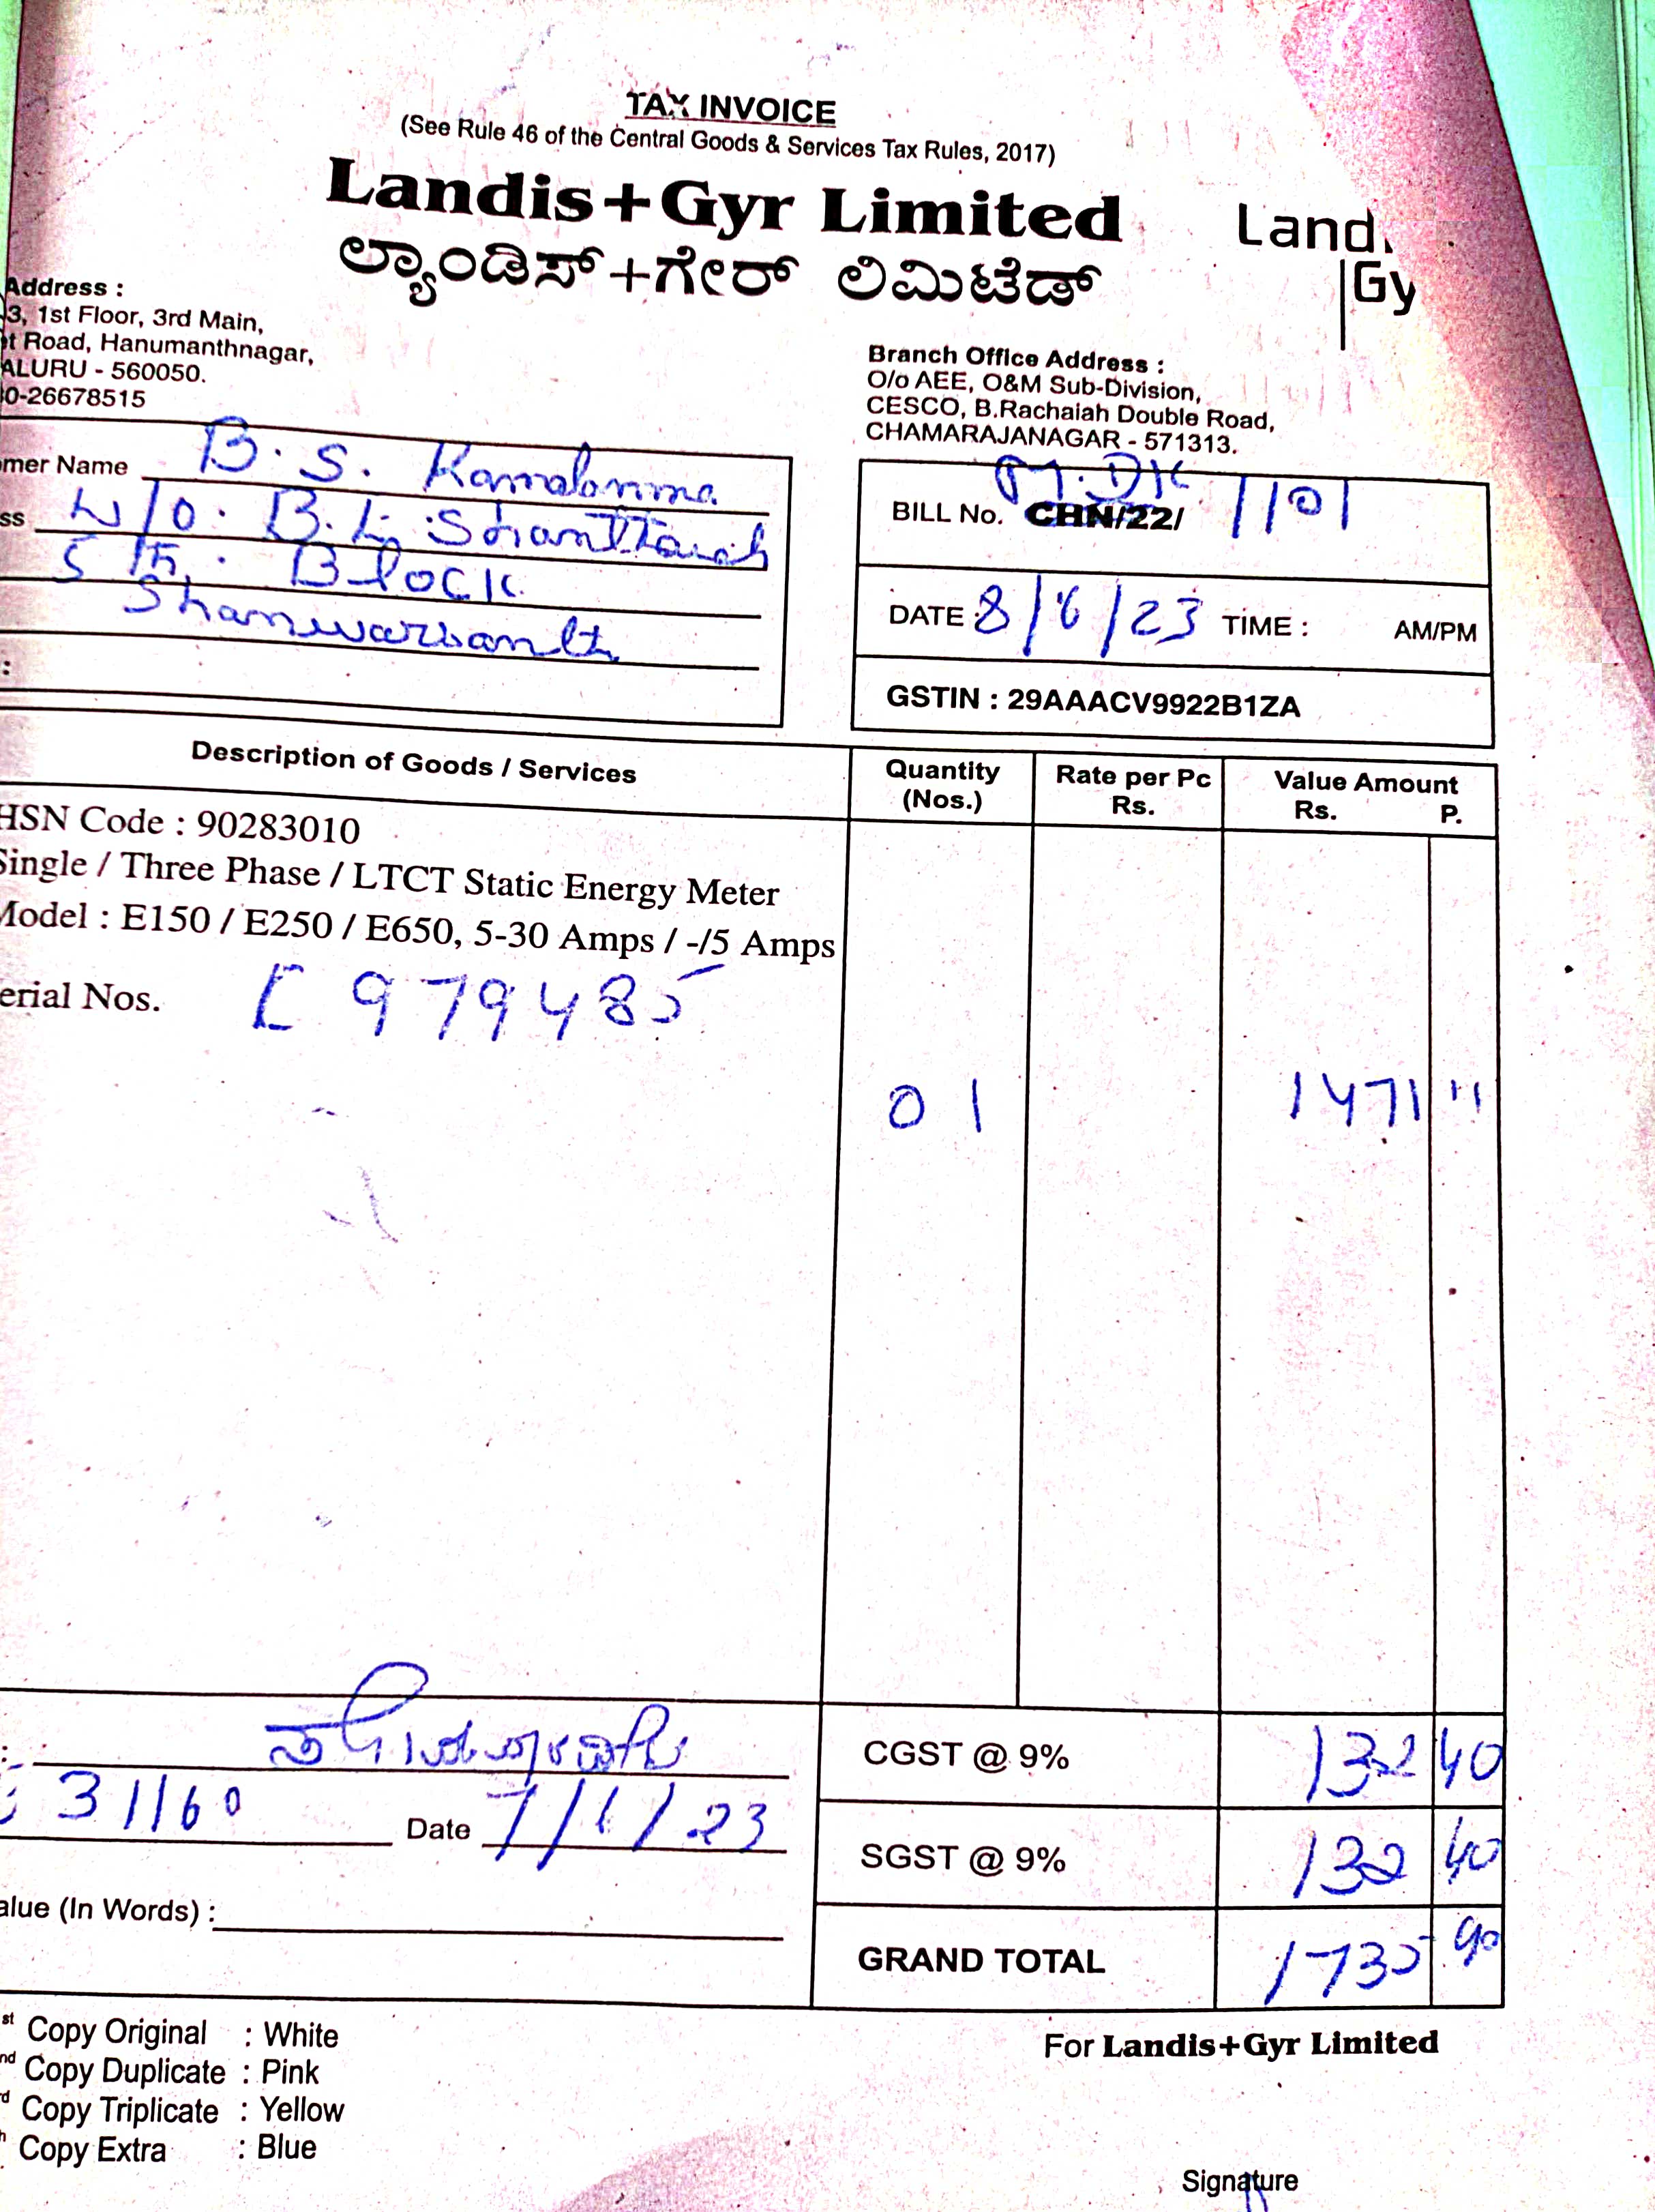 TAX INVOICE
(See Rule 46 of the Central Goods & Services Tax Rules, 2017)
Landis+Gyr Limited
ಲ್ಯಾಂಡಿಸ್+ಗೇರ್ ಲಿಮಿಟೆಡ್
Land
Gy
Address :
3, 1st Floor, 3rd Main,
t Road, Hanumanthnagar,
ALURU - 560050.
0-26678515
Branch Office Address :
O/o AEE, O&M Sub-Division,
CESCO, B.Rachaiah Double Road,
CHAMARAJANAGAR - 571313.
mer Name B. S. Kamalamma
ss W/O. B.L.
5th. Block
BILL No. CHN/22/ 1101
DATE 8/6/23 TIME : AM/PM
GSTIN : 29AAACV9922B1ZA
Description of Goods / Services Quantity (Nos.) Rate per Pc Rs. Value Amount Rs. P.
HSN Code : 90283010
Single / Three Phase / LTCT Static Energy Meter
Model : E150 / E250 / E650, 5-30 Amps / -/5 Amps
erial Nos. 979485
01 1471 "
CGST @ 9% 132 40
31160 Date 7/ /23
SGST @ 9% 132 40
alue (In Words) :
GRAND TOTAL 1735 90
st Copy Original : White
nd Copy Duplicate : Pink
d Copy Triplicate : Yellow
h Copy Extra : Blue
For Landis+Gyr Limited
Signature